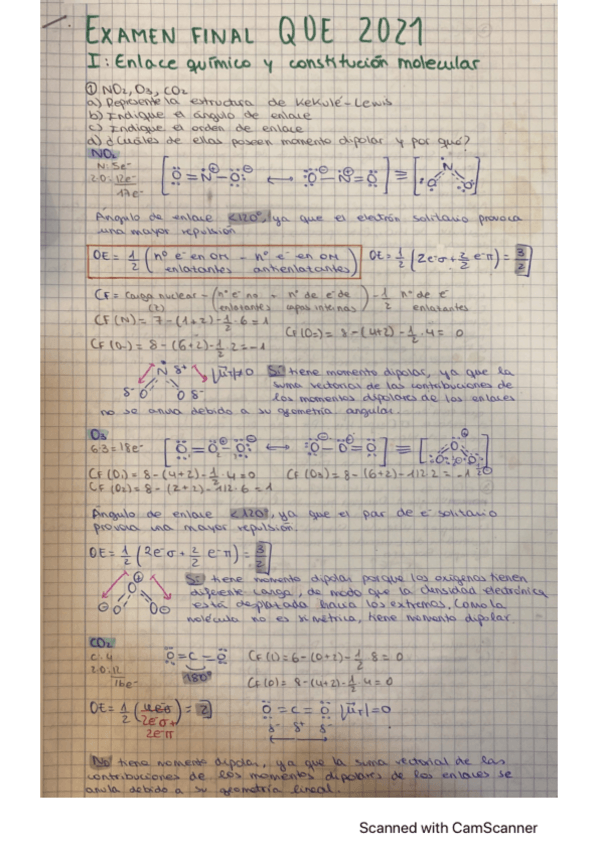 EXAMEN FINAL QDE 2021
I: Enlace químico y constitución molecular
① NO2, O3, CO2
a) Represente la estructura de Kekulé-Lewis
b) Indique el ángulo de enlace
c) Indique el orden de enlace
d) ¿Cuáles de ellas poseen momento dipolar y por qué?
NO2
N: 5e-
2O: 12e-
17e-
Ángulo de enlace <120°, ya que el electrón solitario provoca
una mayor repulsión
OE = 1/2 (nº e- en OM enlatantes - nº e- en OM antienlatantes) OE = 1/2 (2e-σ + 2/2 e-π) = 3/2
CF = carga nuclear (Z) - (nº e- no enlatantes + nº de e- de capas internas) - 1/2 nº de e- enlatantes
CF (N) = 7 - (1+2) - 1/2 · 6 = 1
CF (O2) = 8 - (4+2) - 1/2 · 4 = 0
CF (O1) = 8 - (6+2) - 1/2 · 2 = -1
|μT| ≠ 0 Sí tiene momento dipolar, ya que la
suma vectorial de las contribuciones de
los momentos dipolares de los enlaces
no se anula debido a su geometría angular.
O3
6·3 = 18e-
CF (O1) = 8 - (4+2) - 1/2 · 4 = 0 CF (O3) = 8 - (6+2) - 1/2 · 2 = -1
CF (O2) = 8 - (2+2) - 1/2 · 6 = 1
Ángulo de enlace <120°, ya que el par de e- solitario
provoca una mayor repulsión.
OE = 1/2 (2e-σ + 2/2 e-π) = 3/2
Sí tiene momento dipolar porque los oxígenos tienen
diferente carga, de modo que la densidad electrónica
está desplazada hacia los extremos. Como la
molécula no es simétrica, tiene momento dipolar.
CO2
C: 4
2O: 12
16e-
O = C = O
180°
CF (C) = 6 - (0+2) - 1/2 8 = 0
CF (O) = 8 - (4+2) - 1/2 · 4 = 0
OE = 1/2 (2e-σ + 2e-π) = 2
O = C = O |μT| = 0
δ- δ+ δ-
No tiene momento dipolar, ya que la suma vectorial de las
contribuciones de los momentos dipolares de los enlaces se
anula debido a su geometría lineal.
Scanned with CamScanner